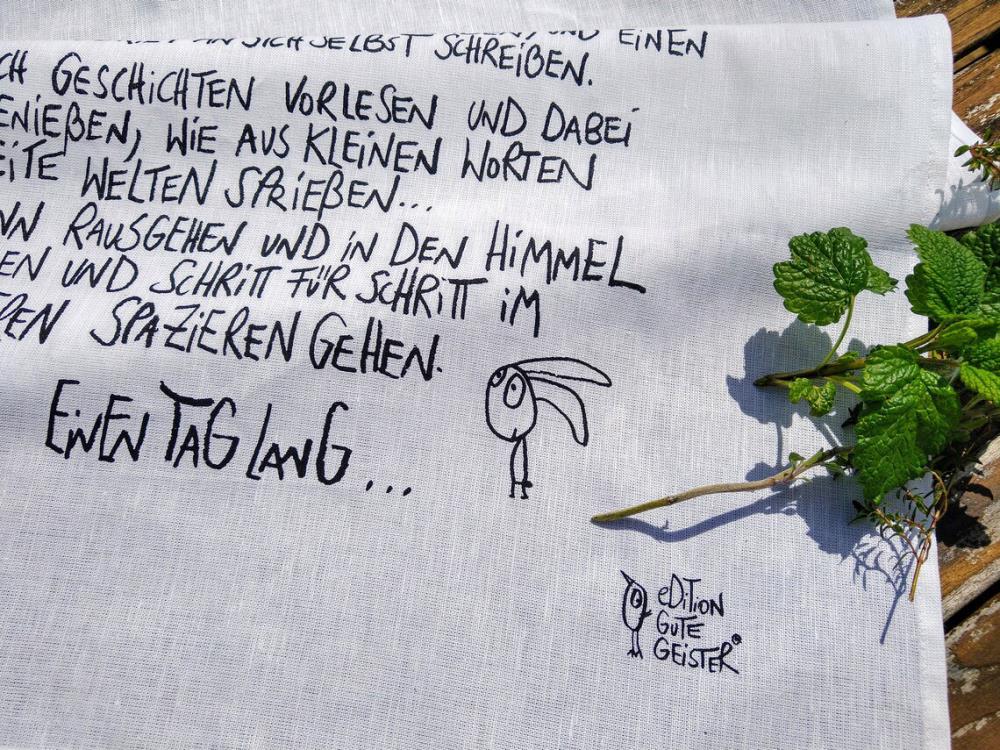 AN SICH SELBST SCHREIBEN, UND EINEN
CH GESCHICHTEN VORLESEN UND DABEI
ENIEßEN, WIE AUS KLEINEN WORTEN
EITE WELTEN SPRIEßEN...
NN RAUSGEHEN UND IN DEN HIMMEL
EN UND SCHRITT FÜR SCHRITT IM
REN SPAZIEREN GEHEN.
EINEN TAG LANG...
eDITION
GUTE
GEISTER®